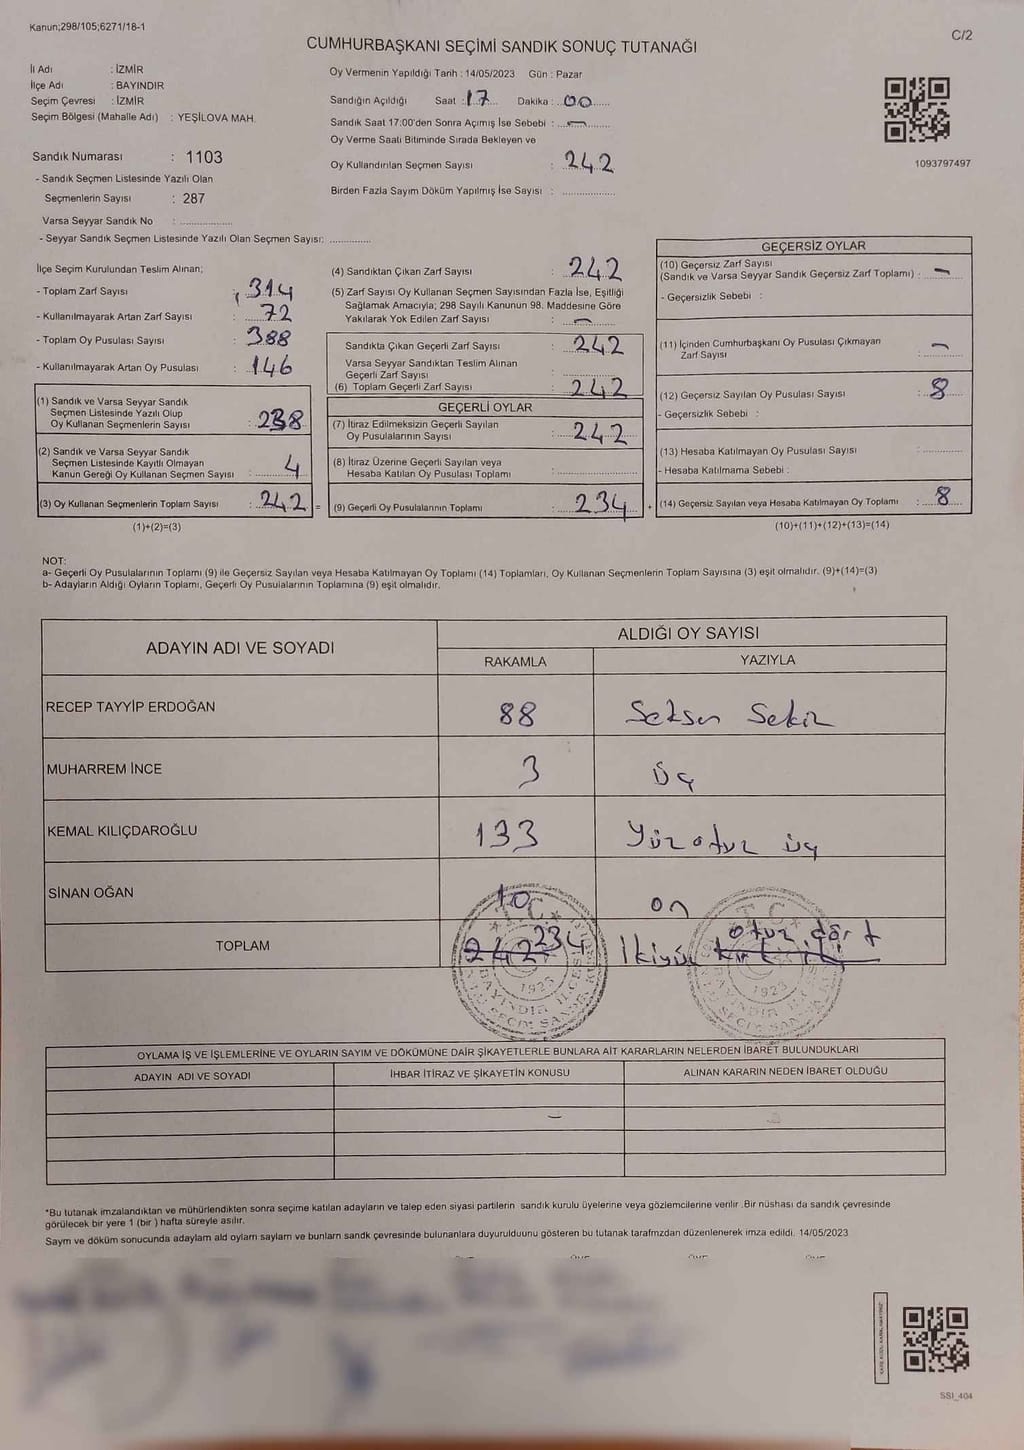 Kanun;298/105;6271/18-1
C/2
CUMHURBAŞKANI SEÇİMİ SANDIK SONUÇ TUTANAĞI
İl Adı : İZMİR
İlçe Adı : BAYINDIR
Seçim Çevresi : İZMİR
Seçim Bölgesi (Mahalle Adı) : YEŞİLOVA MAH.
Sandık Numarası : 1103
- Sandık Seçmen Listesinde Yazılı Olan
Seçmenlerin Sayısı : 287
Varsa Seyyar Sandık No : ....................
- Seyyar Sandık Seçmen Listesinde Yazılı Olan Seçmen Sayısı: ...............
Oy Vermenin Yapıldığı Tarih : 14/05/2023 Gün : Pazar
Sandığın Açıldığı Saat : 17 Dakika : 00
Sandık Saat 17.00'den Sonra Açımış İse Sebebi : —
Oy Verme Saati Bitiminde Sırada Bekleyen ve
Oy Kullandırılan Seçmen Sayısı : 242
Birden Fazla Sayım Döküm Yapılmış İse Sayısı : ....................
1093797497
İlçe Seçim Kurulundan Teslim Alınan;
- Toplam Zarf Sayısı : 314
- Kullanılmayarak Artan Zarf Sayısı : 72
- Toplam Oy Pusulası Sayısı : 388
- Kullanılmayarak Artan Oy Pusulası : 146
(1) Sandık ve Varsa Seyyar Sandık
Seçmen Listesinde Yazılı Olup
Oy Kullanan Seçmenlerin Sayısı : 238
(2) Sandık ve Varsa Seyyar Sandık
Seçmen Listesinde Kayıtlı Olmayan
Kanun Gereği Oy Kullanan Seçmen Sayısı : 4
(3) Oy Kullanan Seçmenlerin Toplam Sayısı : 242 =
(1)+(2)=(3)
(4) Sandıktan Çıkan Zarf Sayısı : 242
(5) Zarf Sayısı Oy Kullanan Seçmen Sayısından Fazla İse, Eşitliği
Sağlamak Amacıyla; 298 Sayılı Kanunun 98. Maddesine Göre
Yakılarak Yok Edilen Zarf Sayısı : —
Sandıkta Çıkan Geçerli Zarf Sayısı : 242
Varsa Seyyar Sandıktan Teslim Alınan
Geçerli Zarf Sayısı : ....................
(6) Toplam Geçerli Zarf Sayısı : 242
GEÇERLİ OYLAR
(7) İtiraz Edilmeksizin Geçerli Sayılan
Oy Pusulalarının Sayısı : 242
(8) İtiraz Üzerine Geçerli Sayılan veya
Hesaba Katılan Oy Pusulası Toplamı : ....................
(9) Geçerli Oy Pusulalarının Toplamı : 234 +
GEÇERSİZ OYLAR
(10) Geçersiz Zarf Sayısı
(Sandık ve Varsa Seyyar Sandık Geçersiz Zarf Toplamı) : —
- Geçersizlik Sebebi :
(11) İçinden Cumhurbaşkanı Oy Pusulası Çıkmayan
Zarf Sayısı : —
(12) Geçersiz Sayılan Oy Pusulası Sayısı : 8
- Geçersizlik Sebebi :
(13) Hesaba Katılmayan Oy Pusulası Sayısı : ............
- Hesaba Katılmama Sebebi :
(14) Geçersiz Sayılan veya Hesaba Katılmayan Oy Toplamı : 8
(10)+(11)+(12)+(13)=(14)
NOT:
a- Geçerli Oy Pusulalarının Toplamı (9) ile Geçersiz Sayılan veya Hesaba Katılmayan Oy Toplamı (14) Toplamları, Oy Kullanan Seçmenlerin Toplam Sayısına (3) eşit olmalıdır. (9)+(14)=(3)
b- Adayların Aldığı Oyların Toplamı, Geçerli Oy Pusulalarının Toplamına (9) eşit olmalıdır.
ADAYIN ADI VE SOYADI ALDIĞI OY SAYISI
RAKAMLA YAZIYLA
RECEP TAYYİP ERDOĞAN 88 Seksen Sekiz
MUHARREM İNCE 3 Üç
KEMAL KILIÇDAROĞLU 133 Yüzotuz üç
SİNAN OĞAN 10 on
TOPLAM 242 234 İkiyüz kırk iki otuz dört
T.C.
1923
BAYINDIR İLÇESİ
T.C.
1923
OYLAMA İŞ VE İŞLEMLERİNE VE OYLARIN SAYIM VE DÖKÜMÜNE DAİR ŞİKAYETLERLE BUNLARA AİT KARARLARIN NELERDEN İBARET BULUNDUKLARI
ADAYIN ADI VE SOYADI İHBAR İTİRAZ VE ŞİKAYETİN KONUSU ALINAN KARARIN NEDEN İBARET OLDUĞU
—
*Bu tutanak imzalandıktan ve mühürlendikten sonra seçime katılan adayların ve talep eden siyasi partilerin sandık kurulu üyelerine veya gözlemcilerine verilir .Bir nüshası da sandık çevresinde
görülecek bir yere 1 (bir ) hafta süreyle asılır.
Sayım ve döküm sonucunda adaylam ald oylam saylam ve bunlarn sandk çevresinde bulunanlara duyurulduunu gösteren bu tutanak tarafmzdan düzenlenerek imza edildi. 14/05/2023
SSI_404